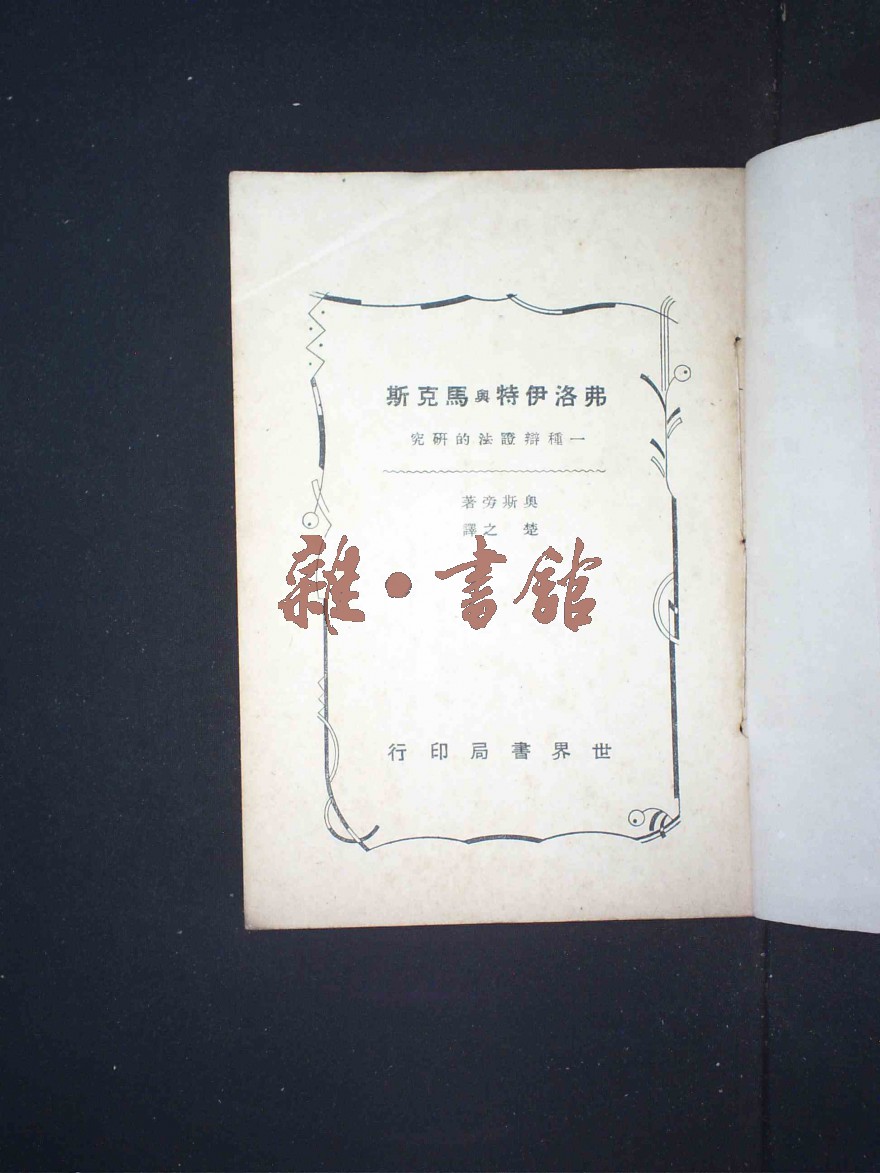 弗洛伊特與馬克斯
一種辯證法的研究
奧斯旁著
楚之譯
雜·書館
世界書局印行